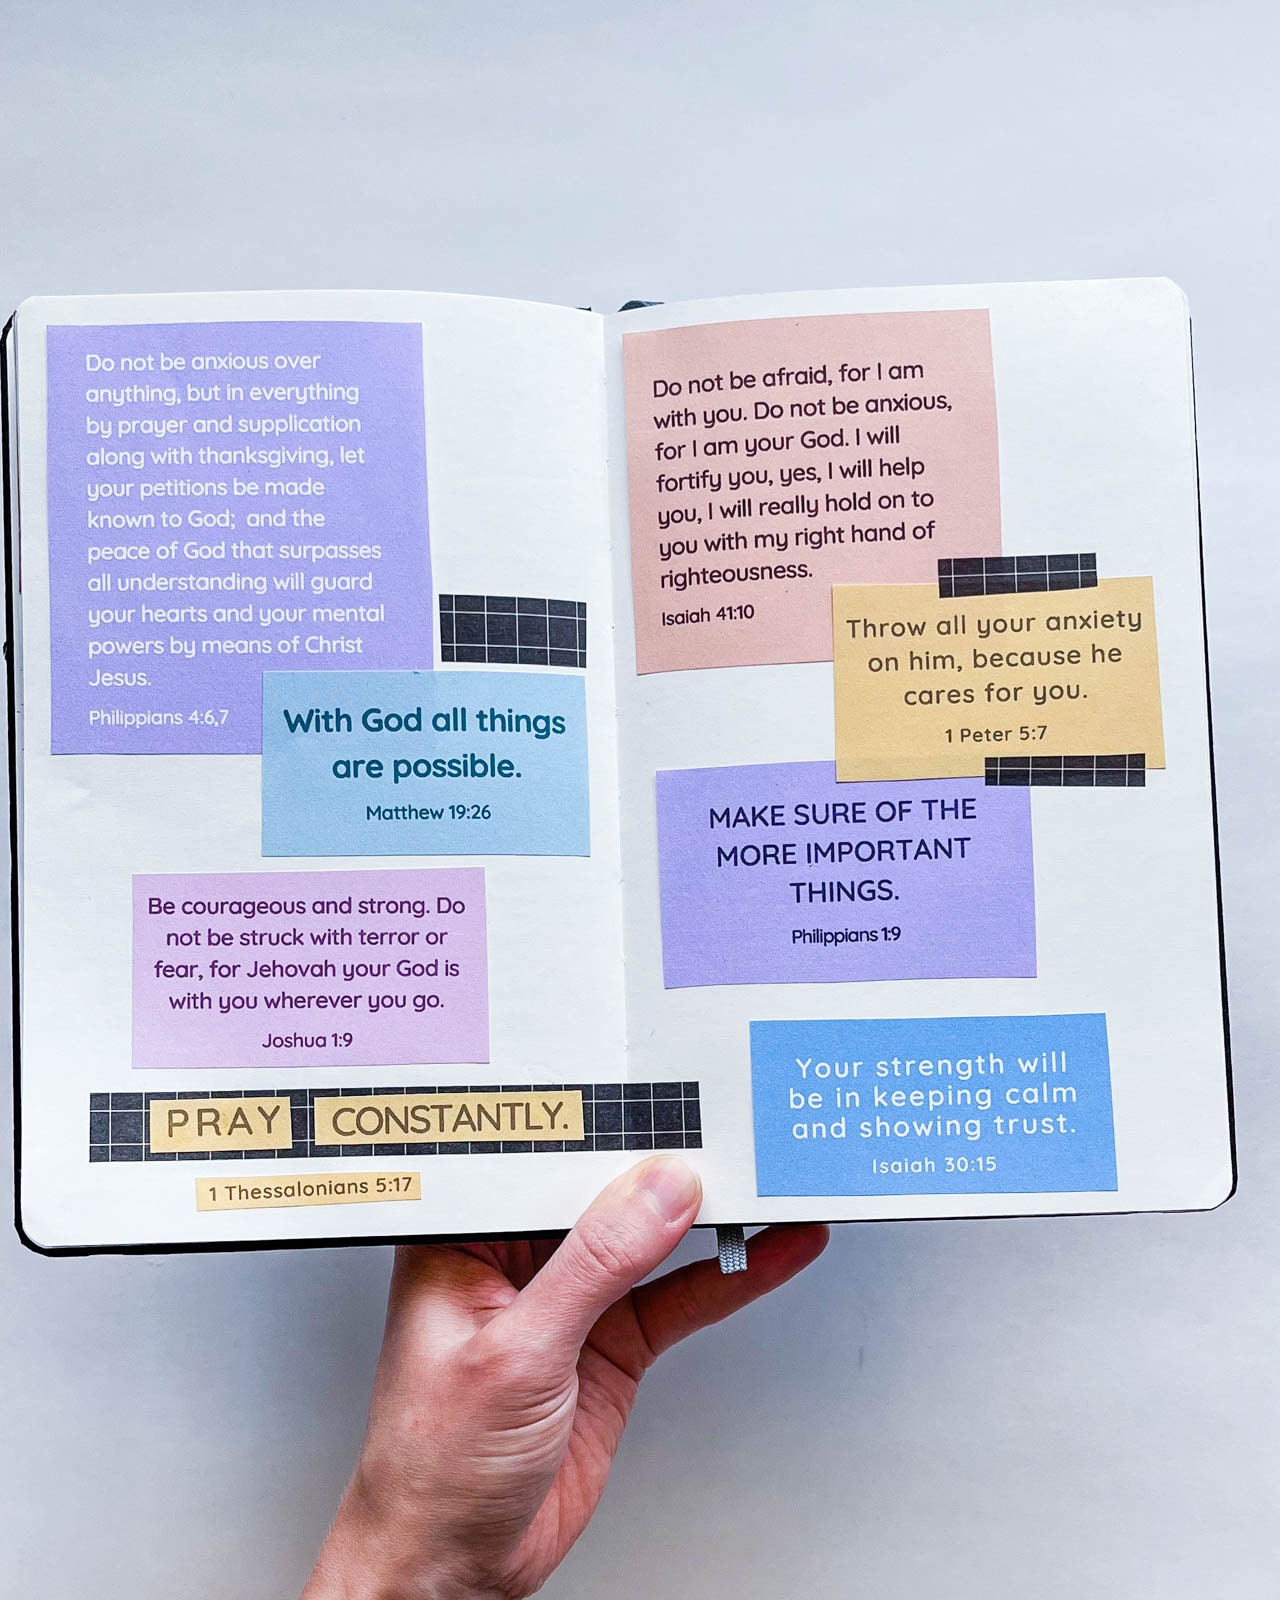 Do not be anxious over
anything, but in everything
by prayer and supplication
along with thanksgiving, let
your petitions be made
known to God;  and the
peace of God that surpasses
all understanding will guard
your hearts and your mental
powers by means of Christ
Jesus.
Philippians 4:6,7
With God all things
are possible.
Matthew 19:26
Be courageous and strong. Do
not be struck with terror or
fear, for Jehovah your God is
with you wherever you go.
Joshua 1:9
PRAY CONSTANTLY.
1 Thessalonians 5:17
Do not be afraid, for I am
with you. Do not be anxious,
for I am your God. I will
fortify you, yes, I will help
you, I will really hold on to
you with my right hand of
righteousness.
Isaiah 41:10
Throw all your anxiety
on him, because he
cares for you.
1 Peter 5:7
MAKE SURE OF THE
MORE IMPORTANT
THINGS.
Philippians 1:9
Your strength will
be in keeping calm
and showing trust.
Isaiah 30:15